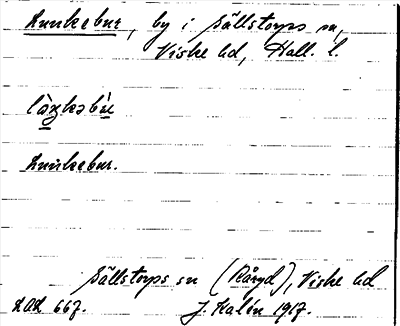 Lunkebur, by i Sällstorps sn,
Viske hd, Hall. l.
Lunkebur.
Sällstorps sn (Råryd), Viske hd
667. J. Kalén 1917.